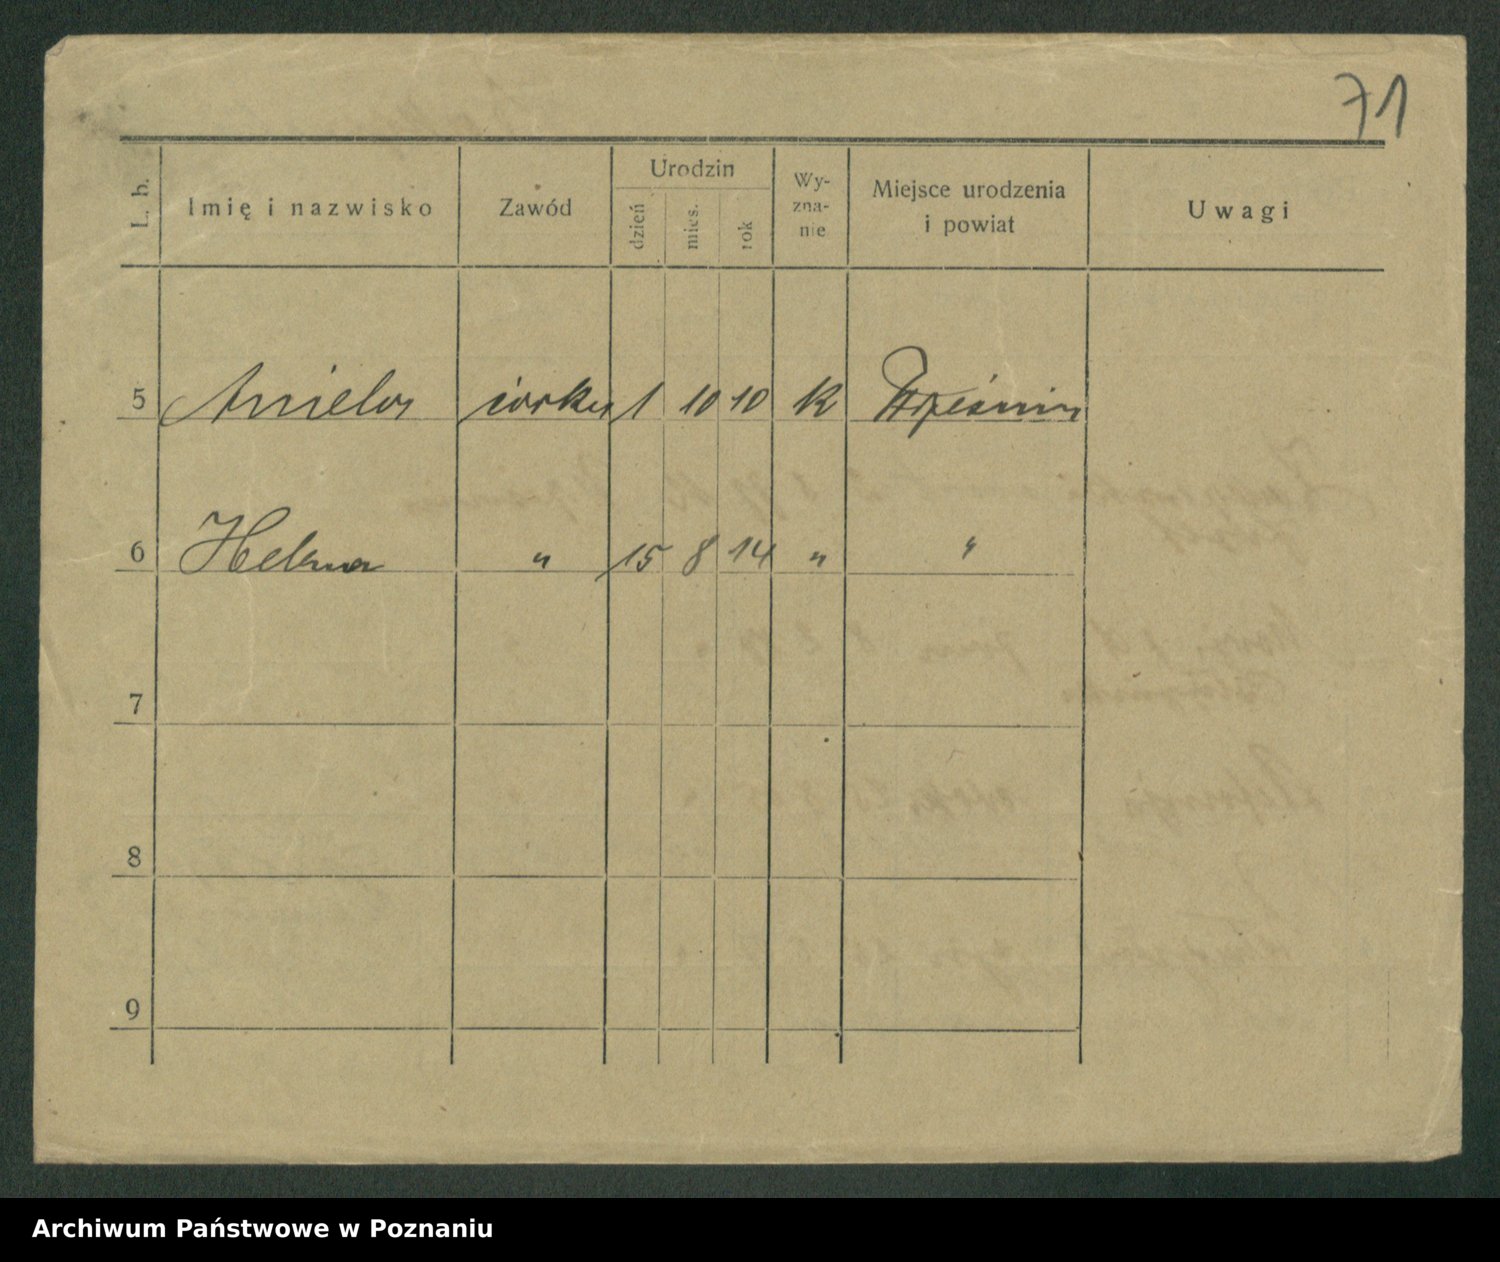 71
L. b.
Imię i nazwisko
Zawód
Urodzin
dzień
mies.
rok
Wy-
zna-
nie
Miejsce urodzenia
i powiat
Uwagi
5 Aniela córka 1 10 10 k Wrześnin
6 Helena " 15 8 14 " "
7
8
9
Archiwum Państwowe w Poznaniu